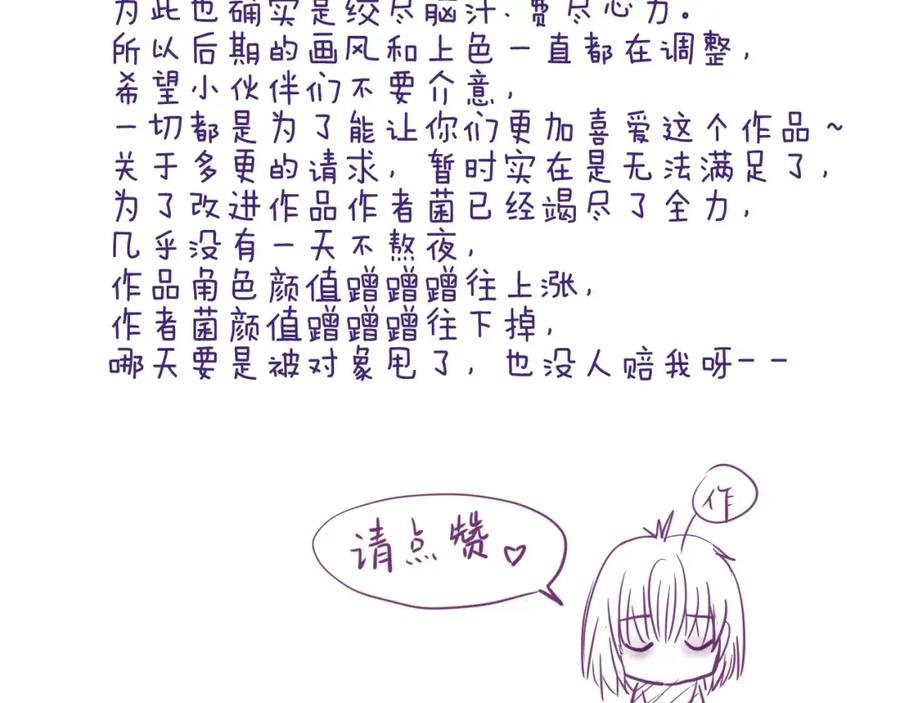 为此也确实是绞尽脑汁、费尽心力。
所以后期的画风和上色一直都在调整，
希望小伙伴们不要介意，
一切都是为了能让你们更加喜爱这个作品～
关于多更的请求，暂时实在是无法满足了，
为了改进作品作者菌已经竭尽了全力，
几乎没有一天不熬夜，
作品角色颜值蹭蹭蹭往上涨，
作者菌颜值蹭蹭蹭往下掉，
哪天要是被对象甩了，也没人赔我呀－－
作
请点赞♡